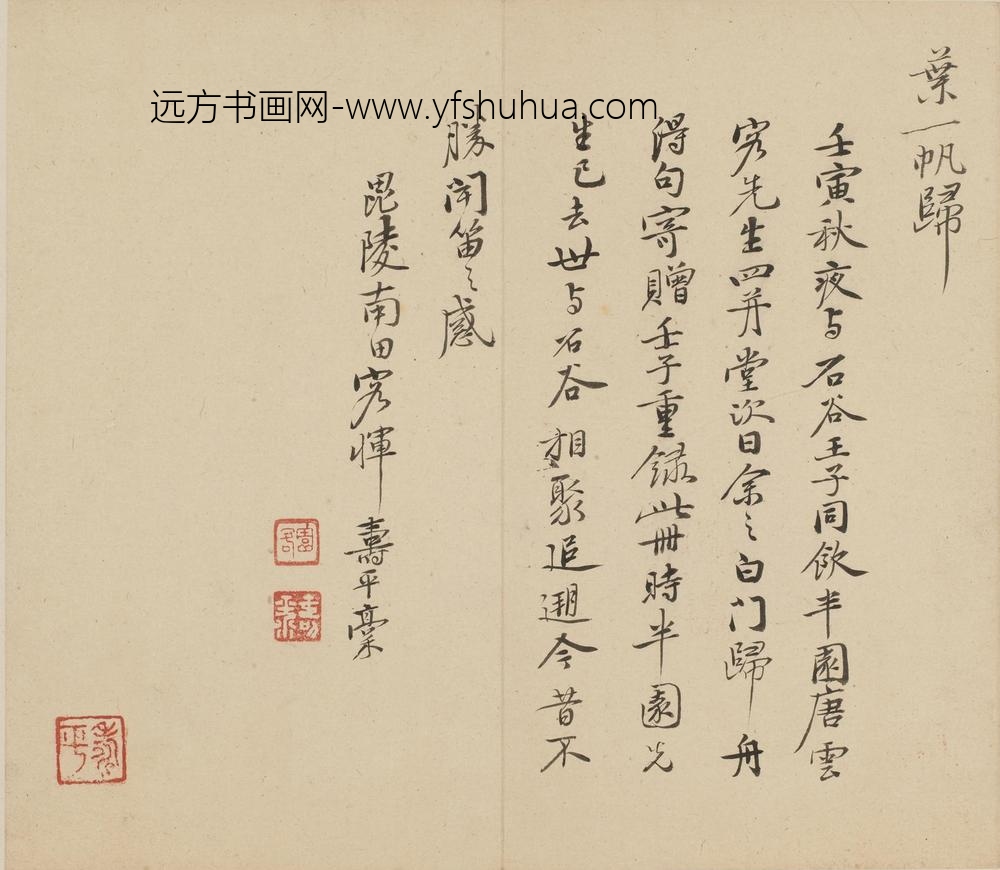 远方书画网-www.yfshuhua.com
葉一帆歸
壬寅秋夜与石谷王子同飲半園唐雲
客先生四并堂次日余之白门歸舟
得句寄贈壬子重錄此冊時半園先
生已去世与石谷相聚追遡今昔不
勝聞笛之感
毘陵南田客惲壽平稾
壽平